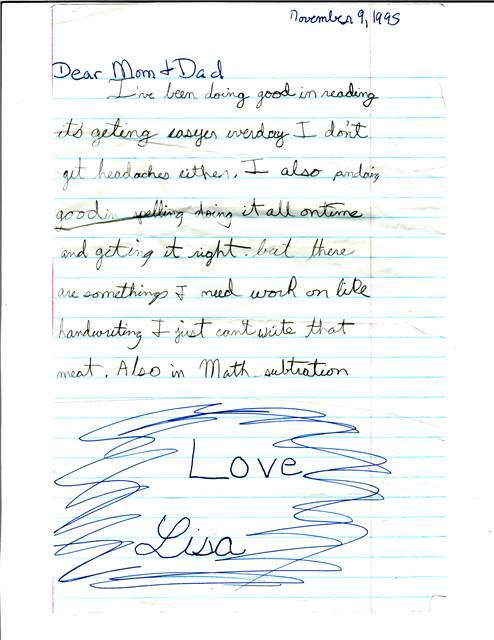 November 9, 1995
Dear Mom & Dad
I've been doing good in reading
it's geting easyer everday I don't
get headaches either. I also
good in spelling doing it all ontime
and geting it right. but there
are somethings I need work on like
handwriting I just can't write that
neat. Also in Math subtration
Love
Lisa